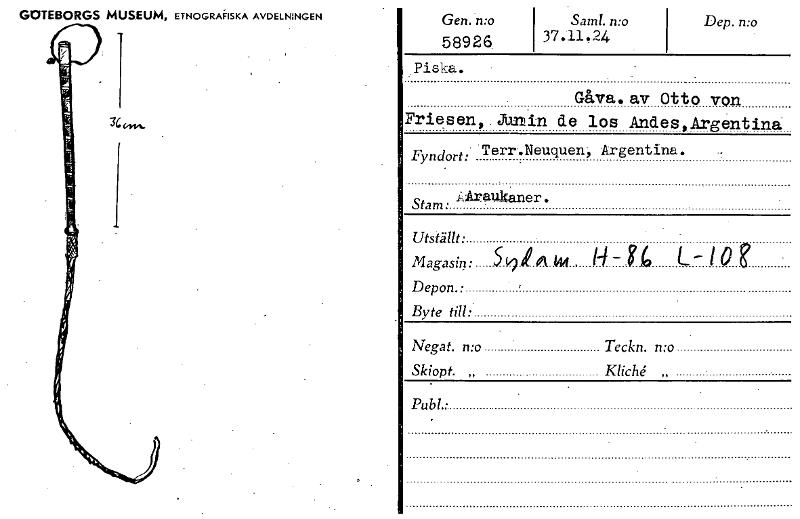 GÖTEBORGS MUSEUM, ETNOGRAFISKA AVDELNINGEN
36cm
Gen. n:o Saml. n:o Dep. n:o
58926 37.11.24
Piska.
Gåva. av Otto von
Friesen, Junin de los Andes, Argentina
Fyndort: Terr.Neuquen, Argentina.
Stam: Araukaner.
Utställt:
Magasin: Sydam H-86 L-108
Depon.:
Byte till:
Negat. n:o Teckn. n:o
Skiopt. „ Kliché „
Publ.: